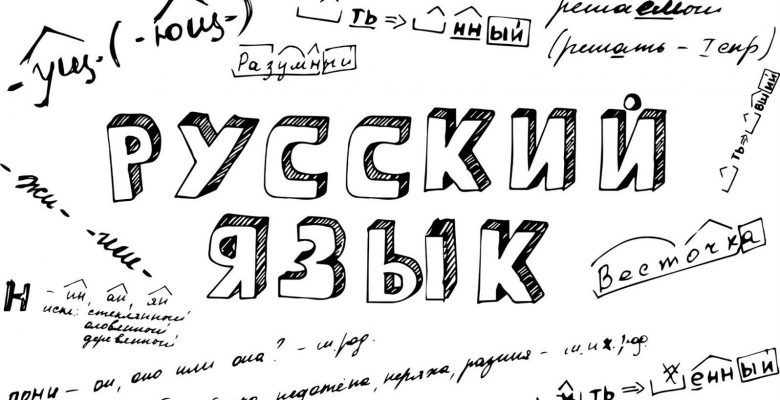 -ущ- (-ющ-)
ть ⇒ нн ый
Разумный
решаемый
(решать – I спр)
ть ⇒ вш ий
РУССКИЙ
ЯЗЫК
- жи -
- ши -
Весточка
Н - ин, ан, ян
искл: стеклянный
оловянный
деревянный
пони – он, оно или она? – м.род.
недотёпа, неряха, разиня – м. и ж. род.
ть ⇒ енн ый